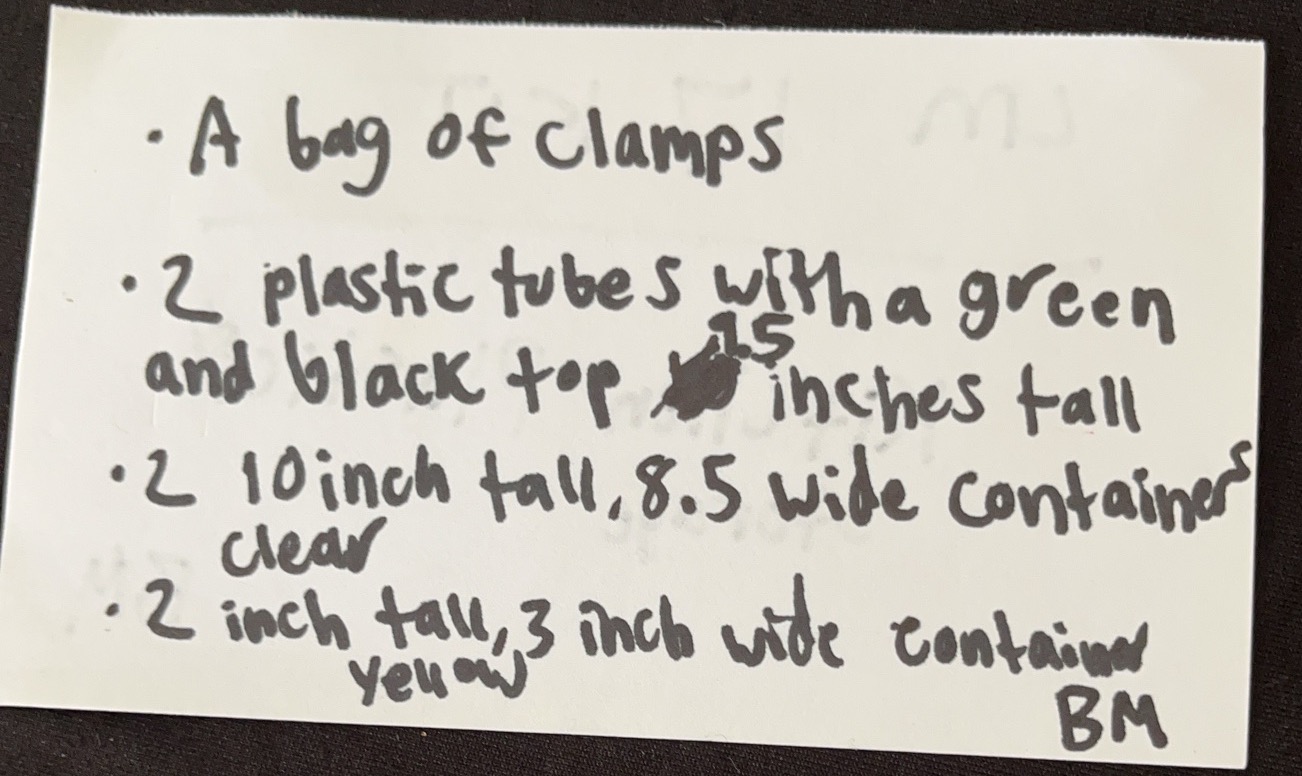 · A bag of clamps
· 2 plastic tubes with a green
and black top 9.5 inches tall
· 2 10 inch tall, 8.5 wide containers
clear
· 2 inch tall, 3 inch wide container
yellow
BM